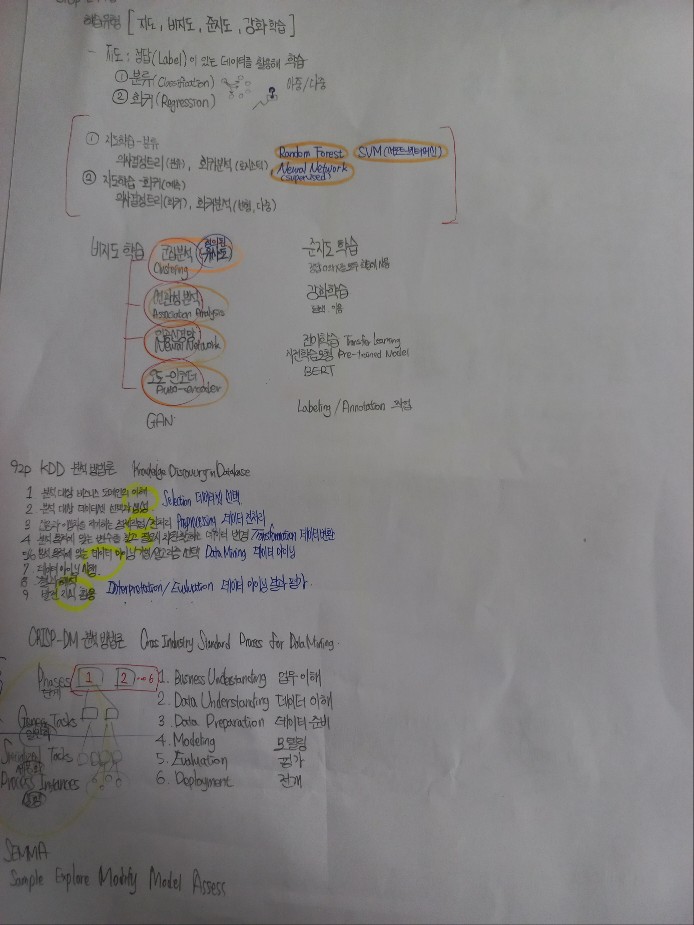 학습유형 [ 지도, 비지도, 준지도, 강화 학습 ]
- 지도 : 정답(Label)이 있는 데이터를 활용해 학습
① 분류(Classification) 이중/다중
② 회귀(Regression)
① 지도학습-분류
의사결정트리(분류), 회귀분석(로지스틱), Random Forest SVM(서포트벡터머신)
Neural Network (supervised)
② 지도학습-회귀(예측)
의사결정트리(회귀), 회귀분석(선형, 다중)
비지도 학습
군집분석
Clustering
연관성 분석
Association Analysis
인공신경망
Neural Network
오토-인코더
Auto-encoder
GAN
준지도 학습
강화학습
전이학습 Transfer Learning
사전학습모형 Pre-trained Model
BERT
Labeling/Annotation 작업
92p KDD 분석 방법론 Knowledge Discovery in Database
1 분석 대상 비즈니스 도메인의 이해
2 분석 대상 데이터셋 선택과 생성 Selection 데이터셋 선택
3 Preprocessing 데이터 전처리
4 분석 목적에 맞는 변수를 찾고 데이터 변경 / Transformation 데이터 변환
5,6 분석 목적에 맞는 데이터 마이닝 기법, 알고리즘 선택 Data Mining 데이터 마이닝
7 데이터 마이닝 시행
8 결과 해석
9 발견 지식 활용 Interpretation/Evaluation 데이터 마이닝 결과 평가
CRISP-DM 분석 방법론 Cross Industry Standard Process for Data Mining
Phases 1 2 ...6
단계
Generic Tasks
일반화
Specialized Tasks
세분화
Process Instances
실행
1. Business Understanding 업무 이해
2. Data Understanding 데이터 이해
3. Data Preparation 데이터 준비
4. Modeling 모델링
5. Evaluation 평가
6. Deployment 전개
SEMMA
Sample Explore Modify Model Assess